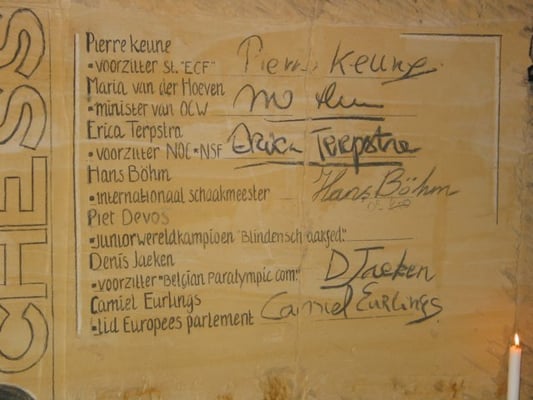 CHESS
Pierre Keune Pierre Keune
• voorzitter st. "ECF"
Maria van der Hoeven
• minister van OCW
Erica Terpstra Erica Terpstra
• voorzitter NOC*NSF
Hans Böhm Hans Böhm
• internationaal schaakmeester
Piet Devos
• Juniorwereldkampioen "Blindenschaakged."
Denis Jaeken DJaeken
• voorzitter "Belgian Paralympic com."
Camiel Eurlings Camiel Eurlings
• lid Europees parlement